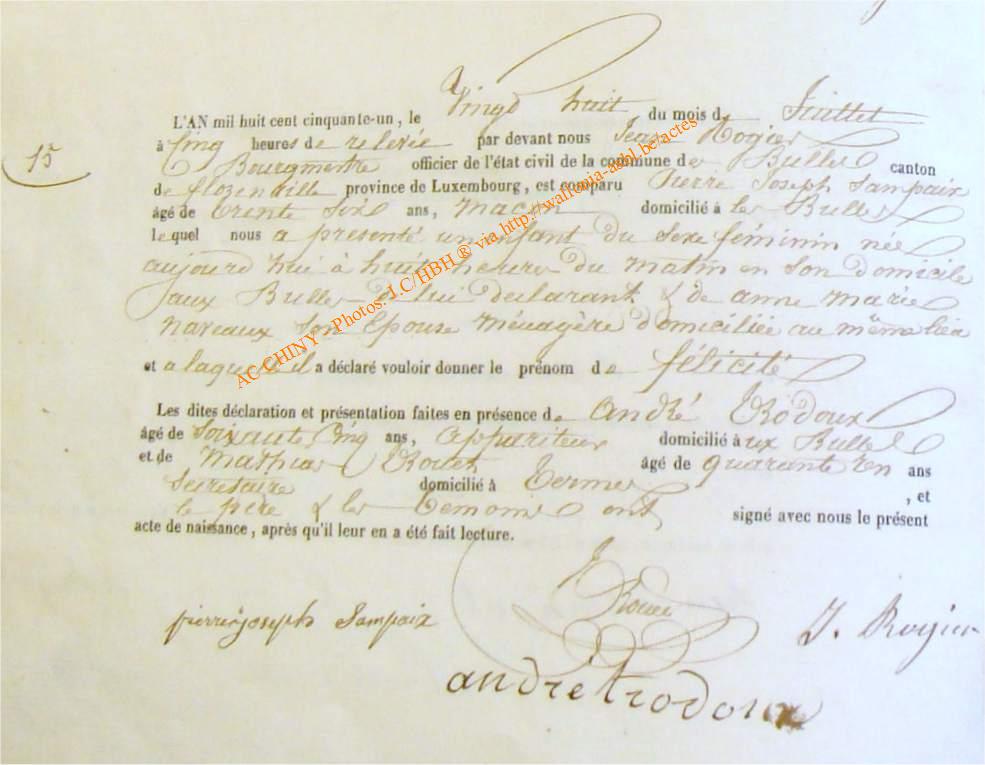 L'AN mil huit cent cinquante-un, le Vingt huit du mois de Juillet
15
à Cinq heures de relevée par devant nous Jean Rogier
Bourgmestre officier de l'état civil de la commune des Bulles canton
de florenville province de Luxembourg, est comparu Pierre Joseph Sampaix
âgé de trente Six ans, maçon domicilié à les Bulles
lequel nous a présenté un enfant du Sexe féminin née
aujourd hui à huit heures du matin en Son domicile
aux Bulles de lui declarant & de anne marie
navaux Son Epouse ménagère domiciliée au même lieu
et a laquelle il a déclaré vouloir donner le prénom de félicité
Les dites déclaration et présentation faites en présence de André Trodoux
âgé de Soixante Cinq ans, appariteur domicilié àux Bulles
et de Mathias Rouer âgé de quarante ans
Secretaire domicilié à Termes , et
le père & les temoins ont signé avec nous le présent
acte de naissance, après qu'il leur en a été fait lecture.
pierre joseph Sampaix
J. Rogier
andré trodoux
AC-CHINY - Photos. J.C/HBH ® via http://wallonia-asbl.be/actes